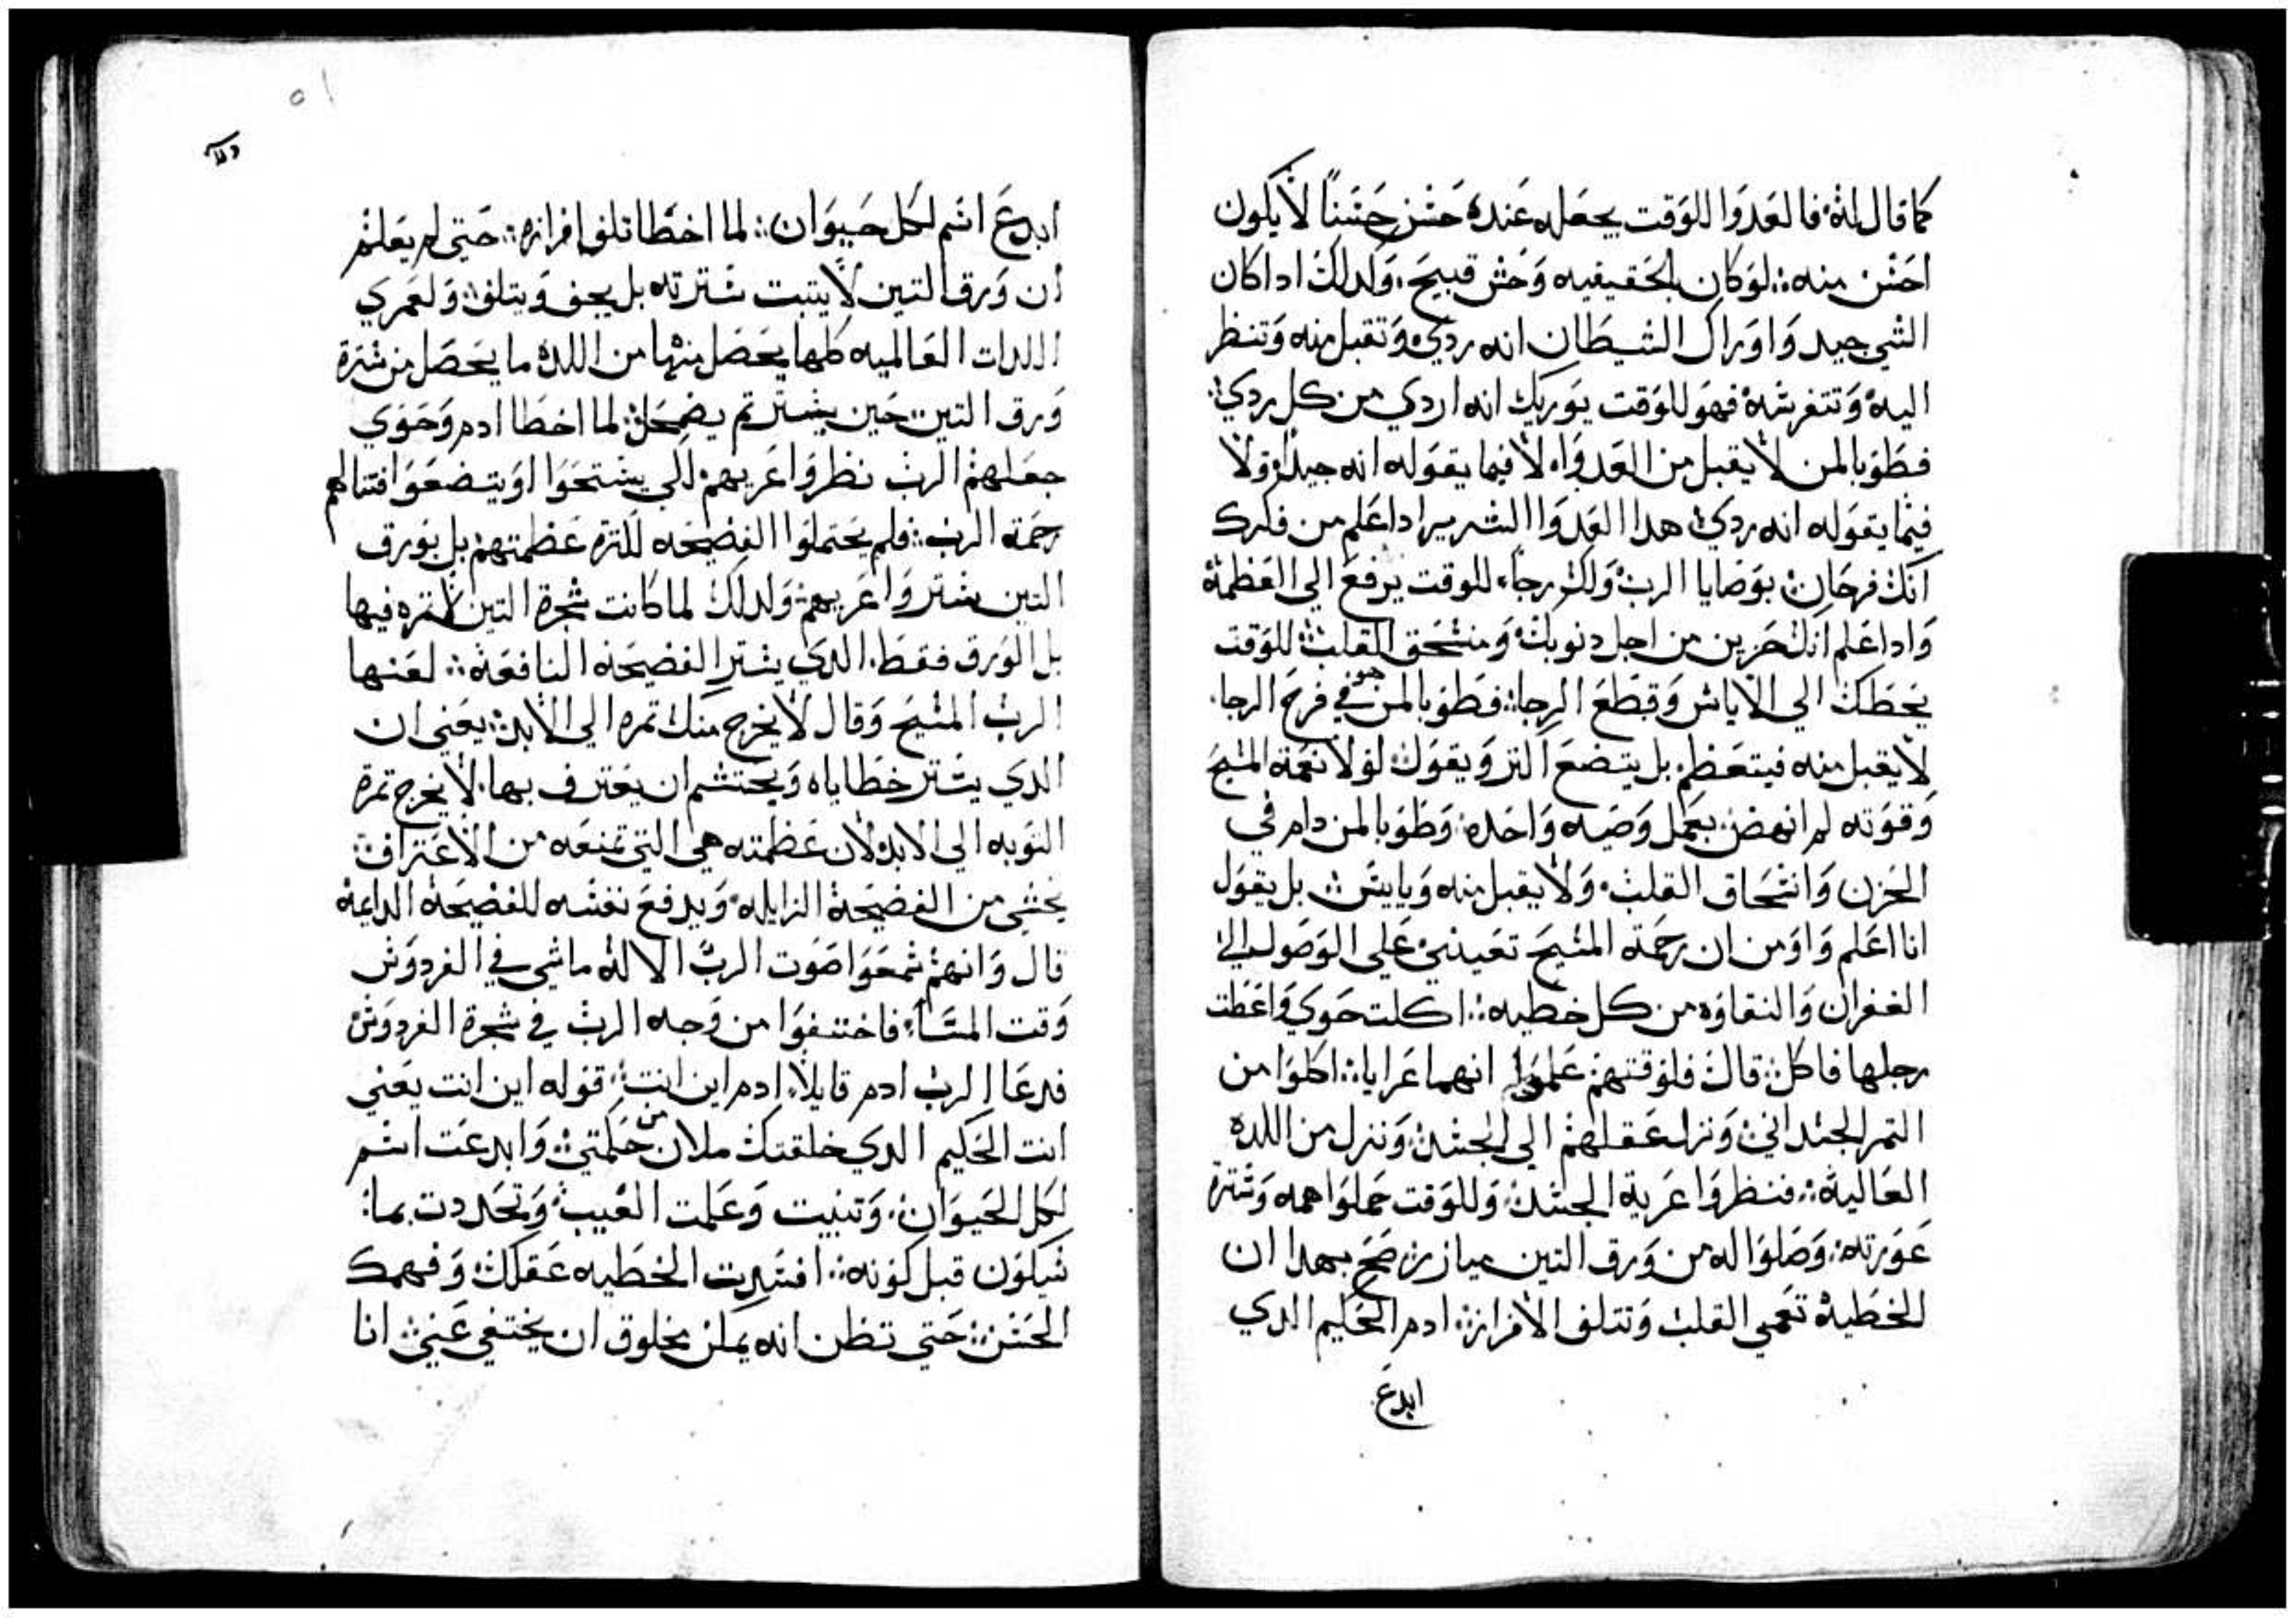 كما قال الله فالعدوا للوقت يجعله عنده حسن حسنًا لا يكون
احسن منه لو كان بالحقيقيه وحش قبيح ولدلك ادا كان
الشي جيد واوراك الشيطان انه ردي وتقبل منه وتنظر
اليه وتتفرسه فهو للوقت يوريك انه اردي من كل ردي
فطوبا لمن لا يقبل من العدوا لا فيما يقوله انه جيد ولا
فيما يقوله انه ردي هدا العدوا الشرير ادا علم من فكرك
انك فرحان بوصايا الرب ولك رجاء للوقت يرفع الي العظمة
وادا علم انك حزين من اجل دنوبك ومنسحق القلب للوقت
يحطك الي الاياس وقطع الرجا فطوبا لمن هو في فرح الرجا
لا يقبل منه فيتعظم بل يتضع اكتر ويقول لولا نعمة المسيح
وقوته لم انهض بعمل وصيه واحده وطوبا لمن دام في
الحزن وانسحاق القلب ولا يقبل منه وياييس بل يقول
انا اعلم واومن ان رحمة المسيح تعيدني علي الوصول الي
الغفران والنقاوه من كل خطيه اكلت حوي واعطت
رجلها فاكل قال فلوقتهم علموا انهما عرايا اكلوا من
التمر الجسداني ونزل عقلهم الي الجسد ونزل من اللده
العاليه فنظروا عرية الجسد وللوقت حملوا همه وسترة
عورته وصلوا له من ورق التين ميازر صح بهدا ان
الخطية تعمي القلب وتتلف الافراز ادم الحكيم الدي
ابدع
٥١
ابدع اسم لكل حيوان لما اخطا تلف افرازه حتي لم يعلم
ان ورق التين لا يتبت سترته بل يجف ويتلف ولعمري
اللدات العالميه كلها يحصل منها من اللدة ما يحصل من سترة
ورق التين حين يستر تم يضمحل لما اخطا ادم وحوي
جعلهم الرب نظروا عريهم لكي يستحوا اويتضعوا فتنالهم
رحمة الرب فلم يحتملوا الفضيحه لكتره عظمتهم بل بورق
التين ستروا عريهم ولدلك لما كانت شجرة التين لا تمره فيها
بل الورق فقط الدي يستر الفضيحة النافعة لعنها
الرب المسيح وقال لا يخرج منك تمره الي الابد يعني ان
الدي يستر خطاياه ويحتشم ان يعترف بها لا يخرج تمرة
التوبه الي الابد لان عظمته هي التي تمنعه من الاعتراف
يخشي من الفضيحة الزايله ويدفع نفسه للفضيحة الدايمة
قال وانهم سمعوا صوت الرب الاله ماشي في الفردوس
وقت المساء فاختفوا من وجه الرب في شجرة الفردوس
فدعا الرب ادم قايلا ادم اين انت قوله اين انت يعني
انت الحكيم الدي خلقتك ملان من حكمتي وابدعت اسم
لكل الحيوان وتنبيت وعلمت الغيب وتحددت بما
سيكون قبل كونه افسدت الخطيه عقلك وفهمك
الحسن حتي تظن انه يمكن مخلوق ان يختفي عني انا